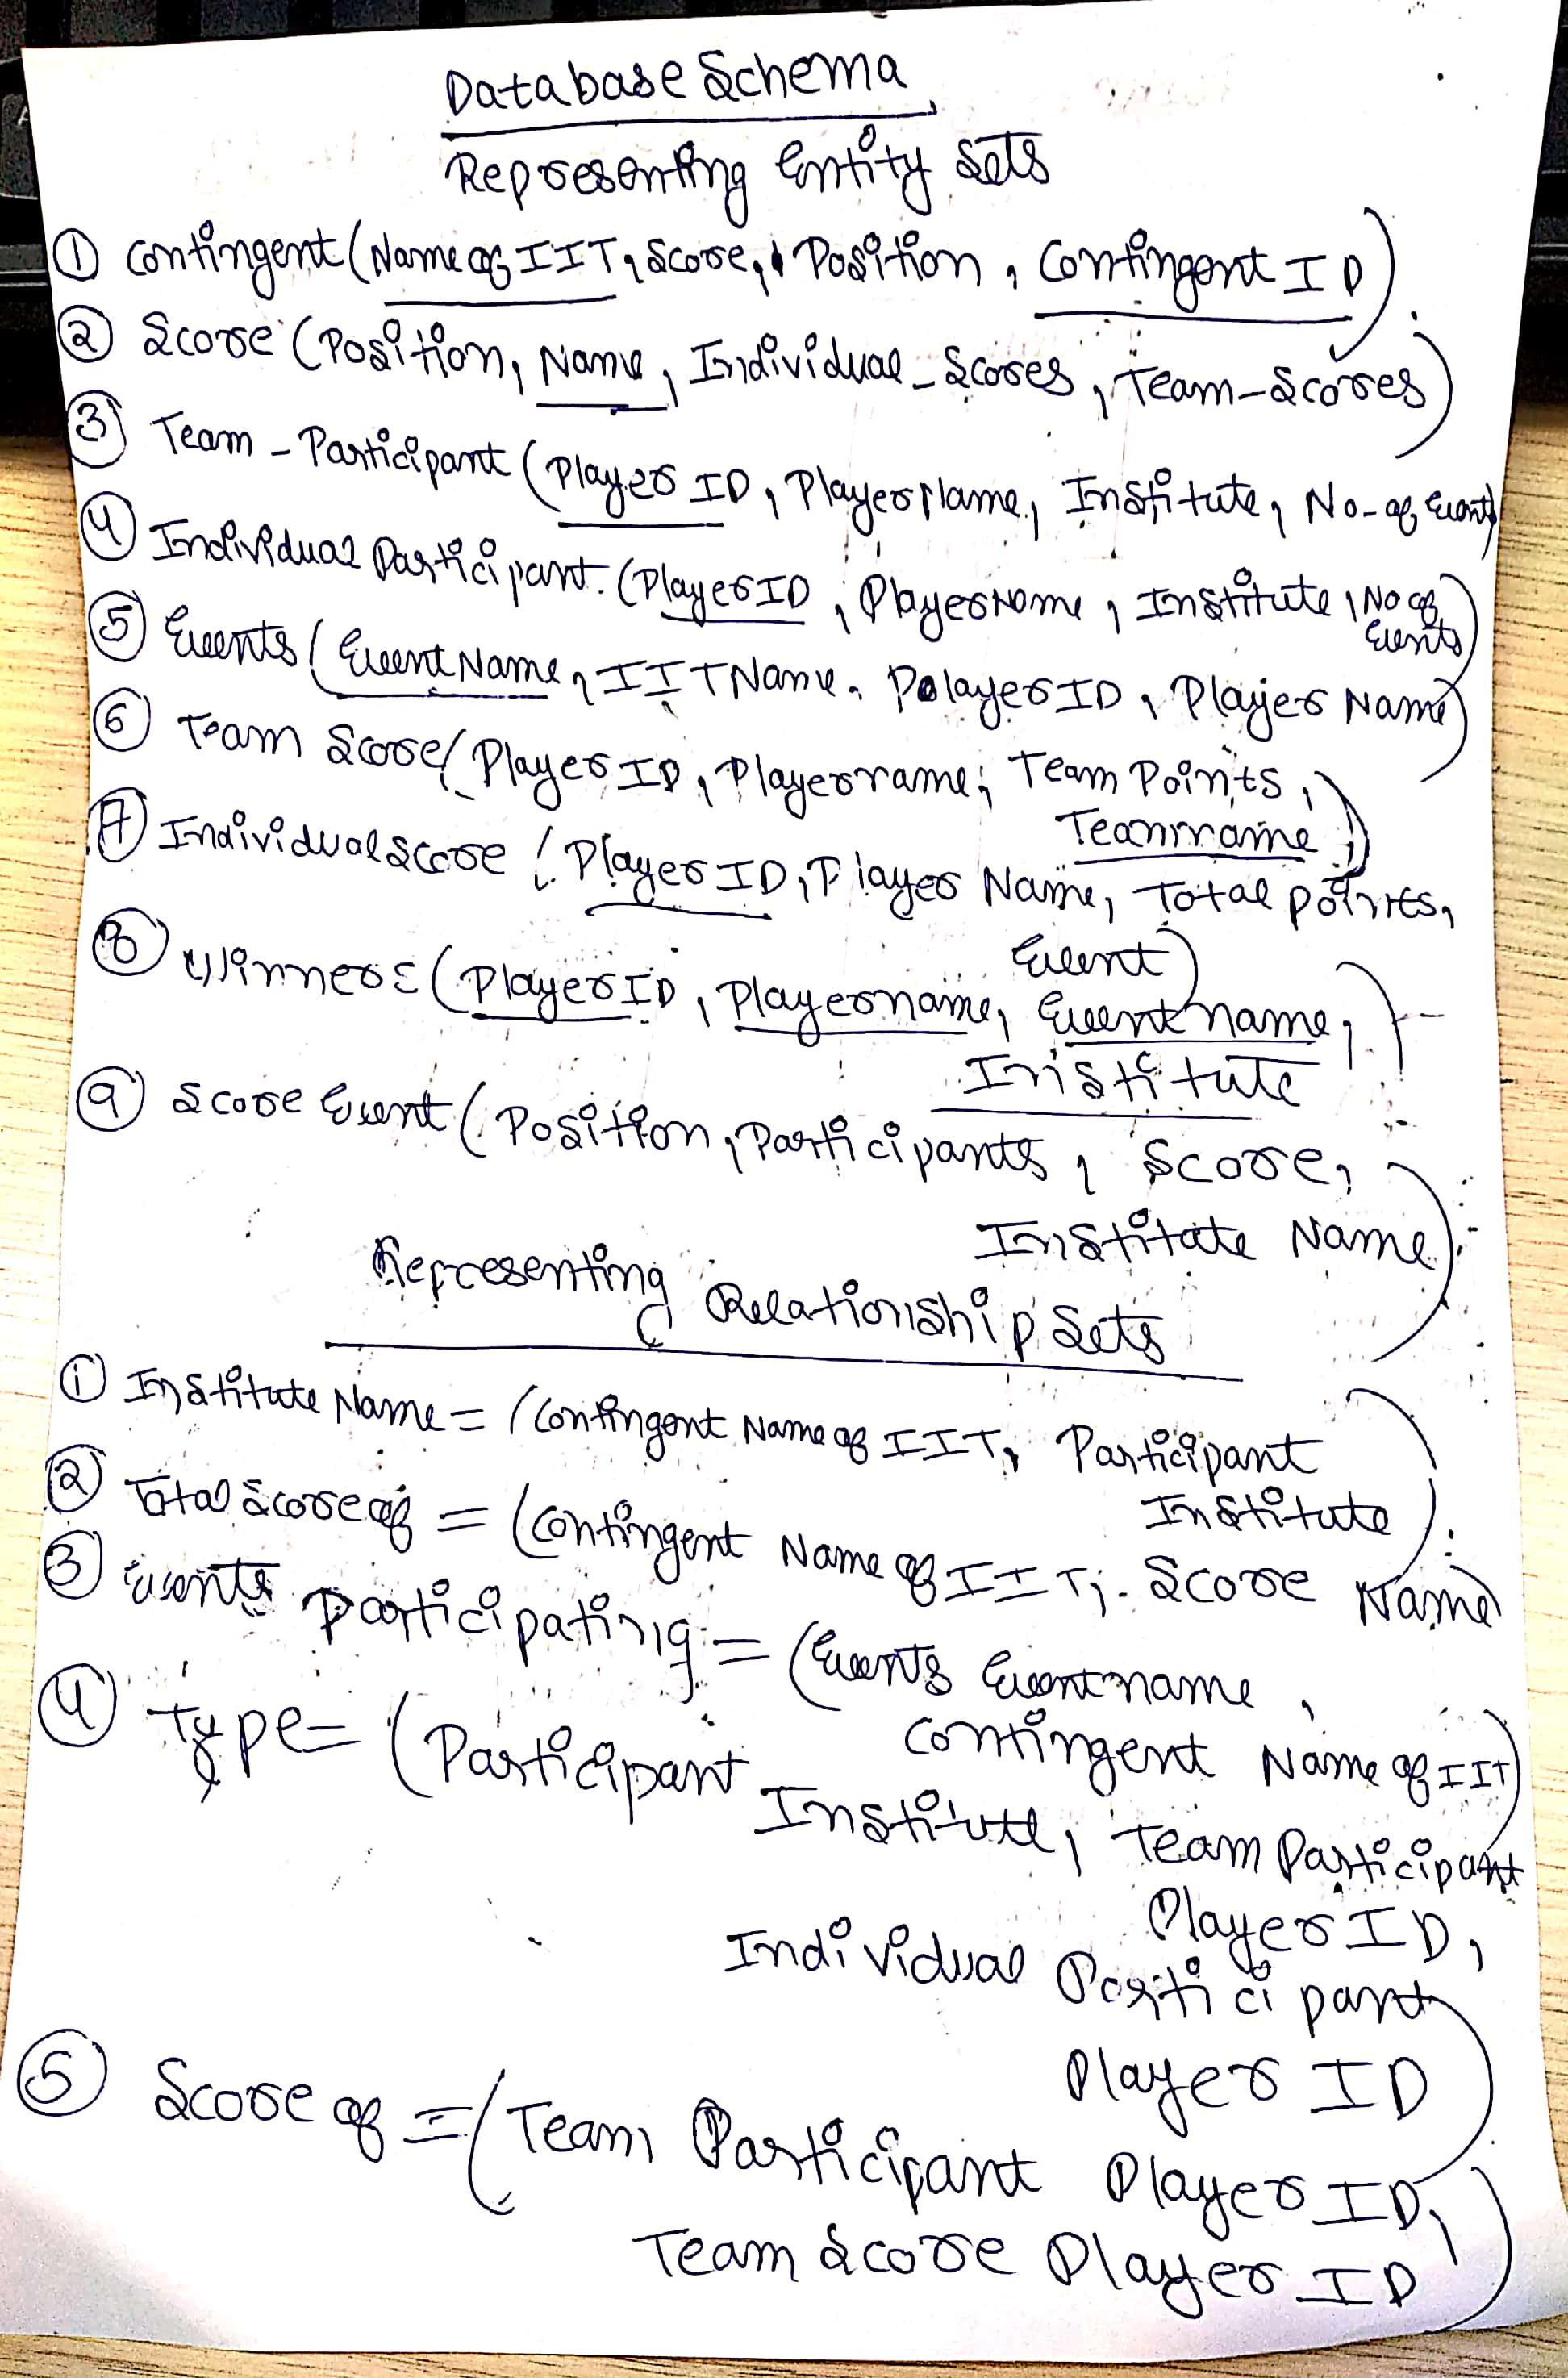 Database Schema
Representing Entity Sets
① Contingent (Name of IIT, Score, Position, Contingent ID).
② Score (Position, Name, Individual_Scores, Team-Scores)
③ Team-Participant (Player ID, Player Name, Institute, No-of Events)
④ Individual Participant. (Player ID, Player Name, Institute, No of
Events)
⑤ Events (Event Name, IIT Name, Polayer ID, Player Name)
⑥ Team Score (Player ID, Playername, Team Points,
Teamname)
⑦ Individual Score (Player ID, Player Name, Total points,
Event)
⑧ Winners (Player ID, Playername, Eventname,
Institute)
⑨ Score Event (Position, Participants, Score,
Institute Name)
Representing Relationship Sets
① Institute Name = (Contingent Name of IIT, Participant
Institute).
② Total Score of = (Contingent Name of IIT, Score Name)
③ Events Participating = (Events Eventname,
Contingent Name of IIT)
④ Type = (Participant Institute, Team Participant
Player ID,
Individual Participant
Player ID)
⑤ Score of = (Team Participant Player ID,
Team Score Player ID)